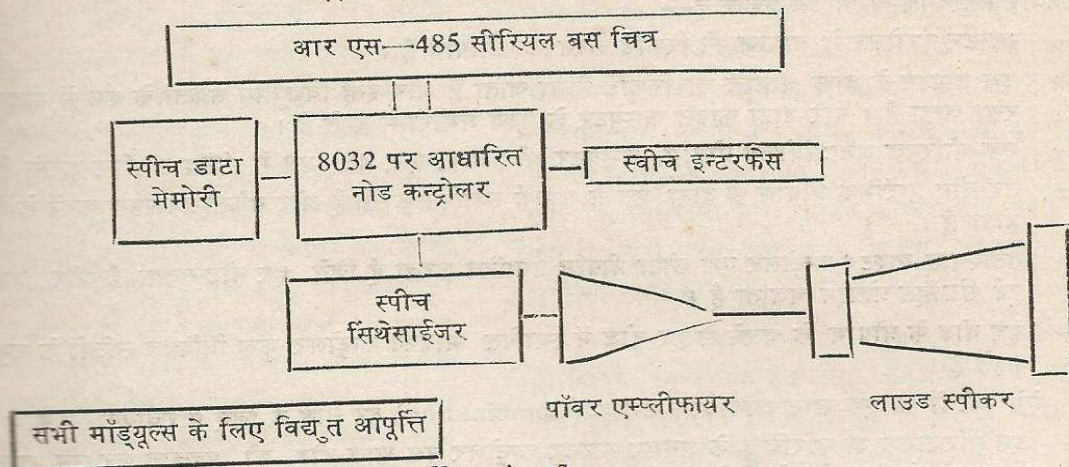 आर एस—485 सीरियल बस चित्र
स्पीच डाटा
मेमोरी
8032 पर आधारित
नोड कन्ट्रोलर
स्वीच इन्टरफेस
स्पीच
सिंथेसाईजर
पॉवर एम्प्लीफायर
लाउड स्पीकर
सभी मॉड्यूल्स के लिए विद्युत आपूर्त्ति